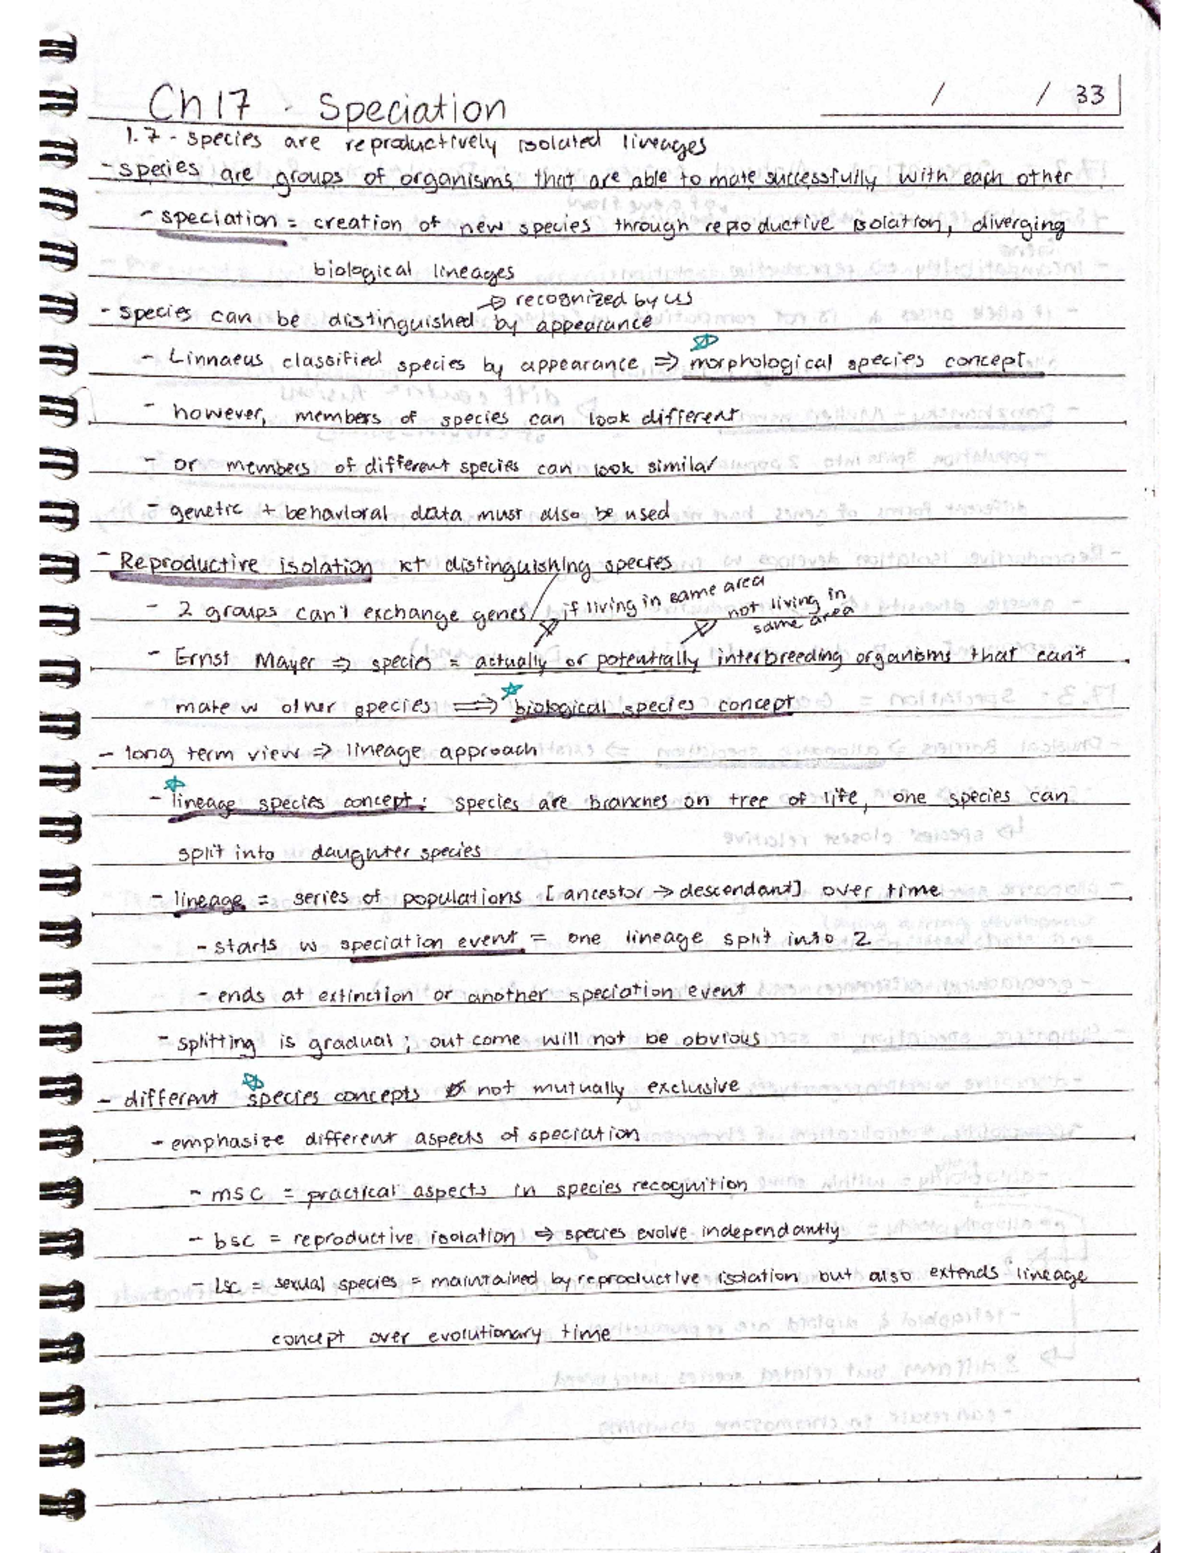 / / 33
Ch 17 - Speciation
1.7 - species are reproductively isolated lineages
- species are groups of organisms that are able to mate successfully with each other
- speciation = creation of new species through reproductive isolation, diverging
biological lineages
→ recognized by us
- species can be distinguished by appearance
- Linnaeus classified species by appearance ⇒ morphological species concept
- however, members of species can look different
- or members of different species can look similar
- genetic + behavioral data must also be used
- Reproductive isolation kt distinguishing species
- 2 groups can't exchange genes
if living in same area
not living in
same area
- Ernst Mayer ⇒ species = actually or potentially interbreeding organisms that can't
mate w other species ⇒ biological species concept
- long term view ⇒ lineage approach
- lineage species concept: species are branches on tree of life, one species can
split into daughter species
- lineage = series of populations [ancestor → descendant] over time
- starts w speciation event = one lineage split into 2
- ends at extinction or another speciation event
- splitting is gradual; out come will not be obvious
- different species concepts not mutually exclusive
- emphasize different aspects of speciation
- msc = practical aspects in species recognition
- bsc = reproductive isolation ⇒ species evolve independantly
- Lsc = sexual species = maintained by reproductive isolation but also extends lineage
concept over evolutionary time